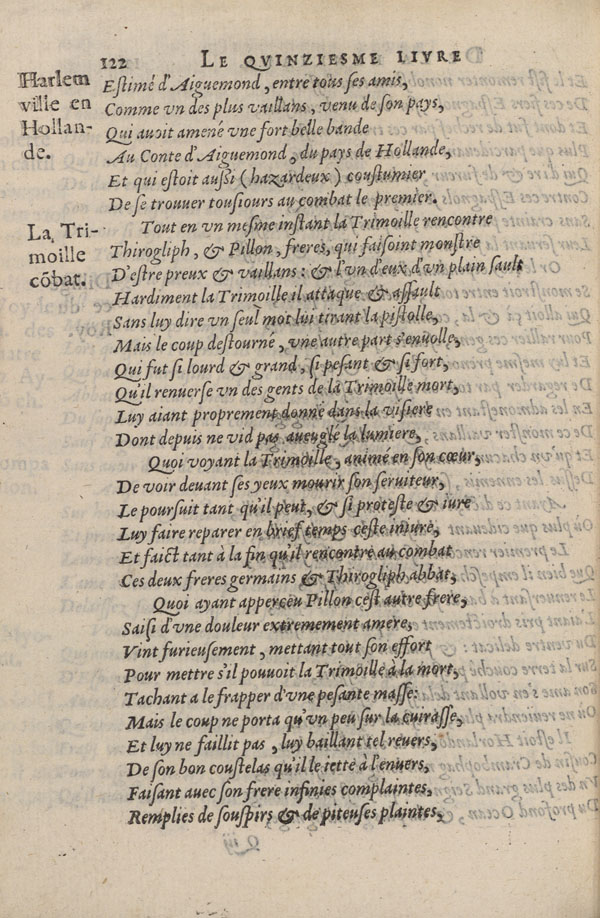 122 LE QVINZIESME LIVRE
Harlem
ville en
Hollan-
de.
Estimé d'Aiguemond, entre tous ses amis,
Comme vn des plus vaillans, venu de son pays,
Qui auoit amené vne fort belle bande
Au Conte d'Aiguemond, du pays de Hollande,
Et qui estoit aussi (hazardeux) coustumier
De se trouuer tousiours au combat le premier.
La Tri-
moille
cõbat.
Tout en vn mesme instant la Trimoille rencontre
Thirogliph, & Pillon, freres, qui faisoint monstre
D'estre preux & vaillans: & l'vn d'eux d'vn plain sault
Hardiment la Trimoille il attaque & assault
Sans luy dire vn seul mot lui tirant la pistolle,
Mais le coup destourné, vne autre part s'enuolle,
Qui fut si lourd & grand, si pesant & si fort,
Qu'il renuerse vn des gents de la Trimoille mort,
Luy aiant proprement donné dans la visiere
Dont depuis ne vid pas aueuglé la lumiere,
Quoi voyant la Trimoille, animé en son cœur,
De voir deuant ses yeux mourir son seruiteur,
Le poursuit tant qu'il peut, & si proteste & iure
Luy faire reparer en brief temps ceste iniure,
Et faict tant à la fin qu'il rencontre au combat
Ces deux freres germains & Thirogliph abbat,
Quoi ayant apperçeu Pillon cest autre frere,
Saisi d'vne douleur extremement amere,
Vint furieusement, mettant tout son effort
Pour mettre s'il pouuoit la Trimoille à la mort,
Tachant a le frapper d'vne pesante masse:
Mais le coup ne porta qu'vn peu sur la cuirasse,
Et luy ne faillit pas, luy baillant tel reuers,
De son bon coustelas qu'il le iette à l'enuers,
Faisant auec son frere infinies complaintes,
Remplies de souspirs & de piteuses plaintes,